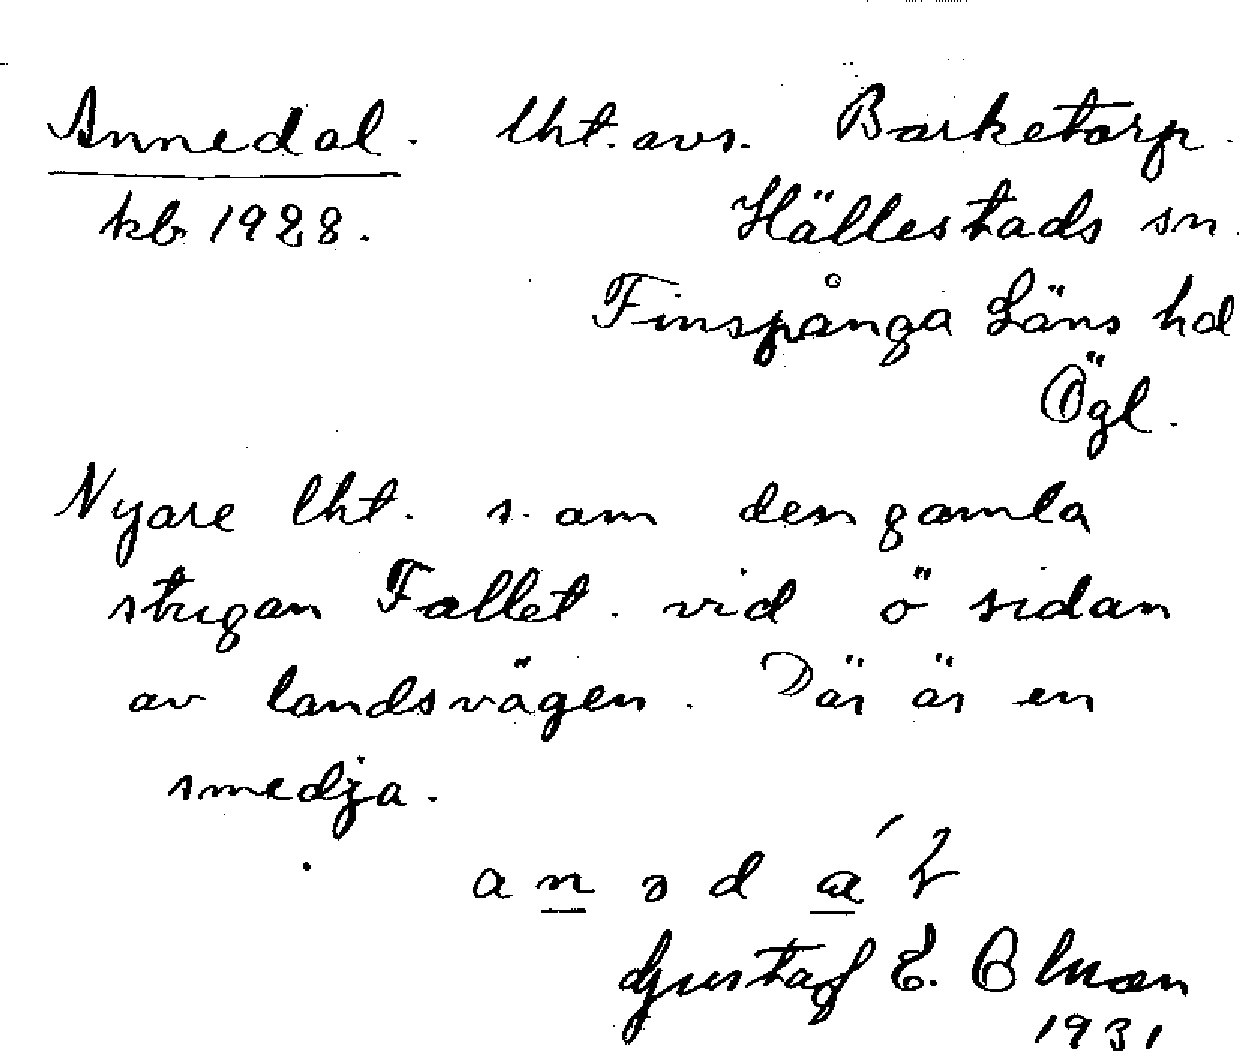 Annedal. lht. avs. Barketorp.
kb 1928. Hällestads sn.
Finspånga Läns hd
Ögl.
Nyare lht. s. om den gamla
stugan Fallet. vid ö sidan
av landsvägen. Där är en
smedja.
Gustaf E. Olmæn
1931